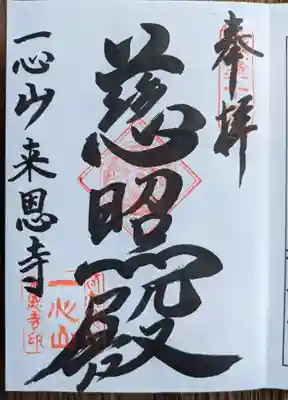 奉拝
慈昭殿
一心山来恩寺
一心山
恩寺印